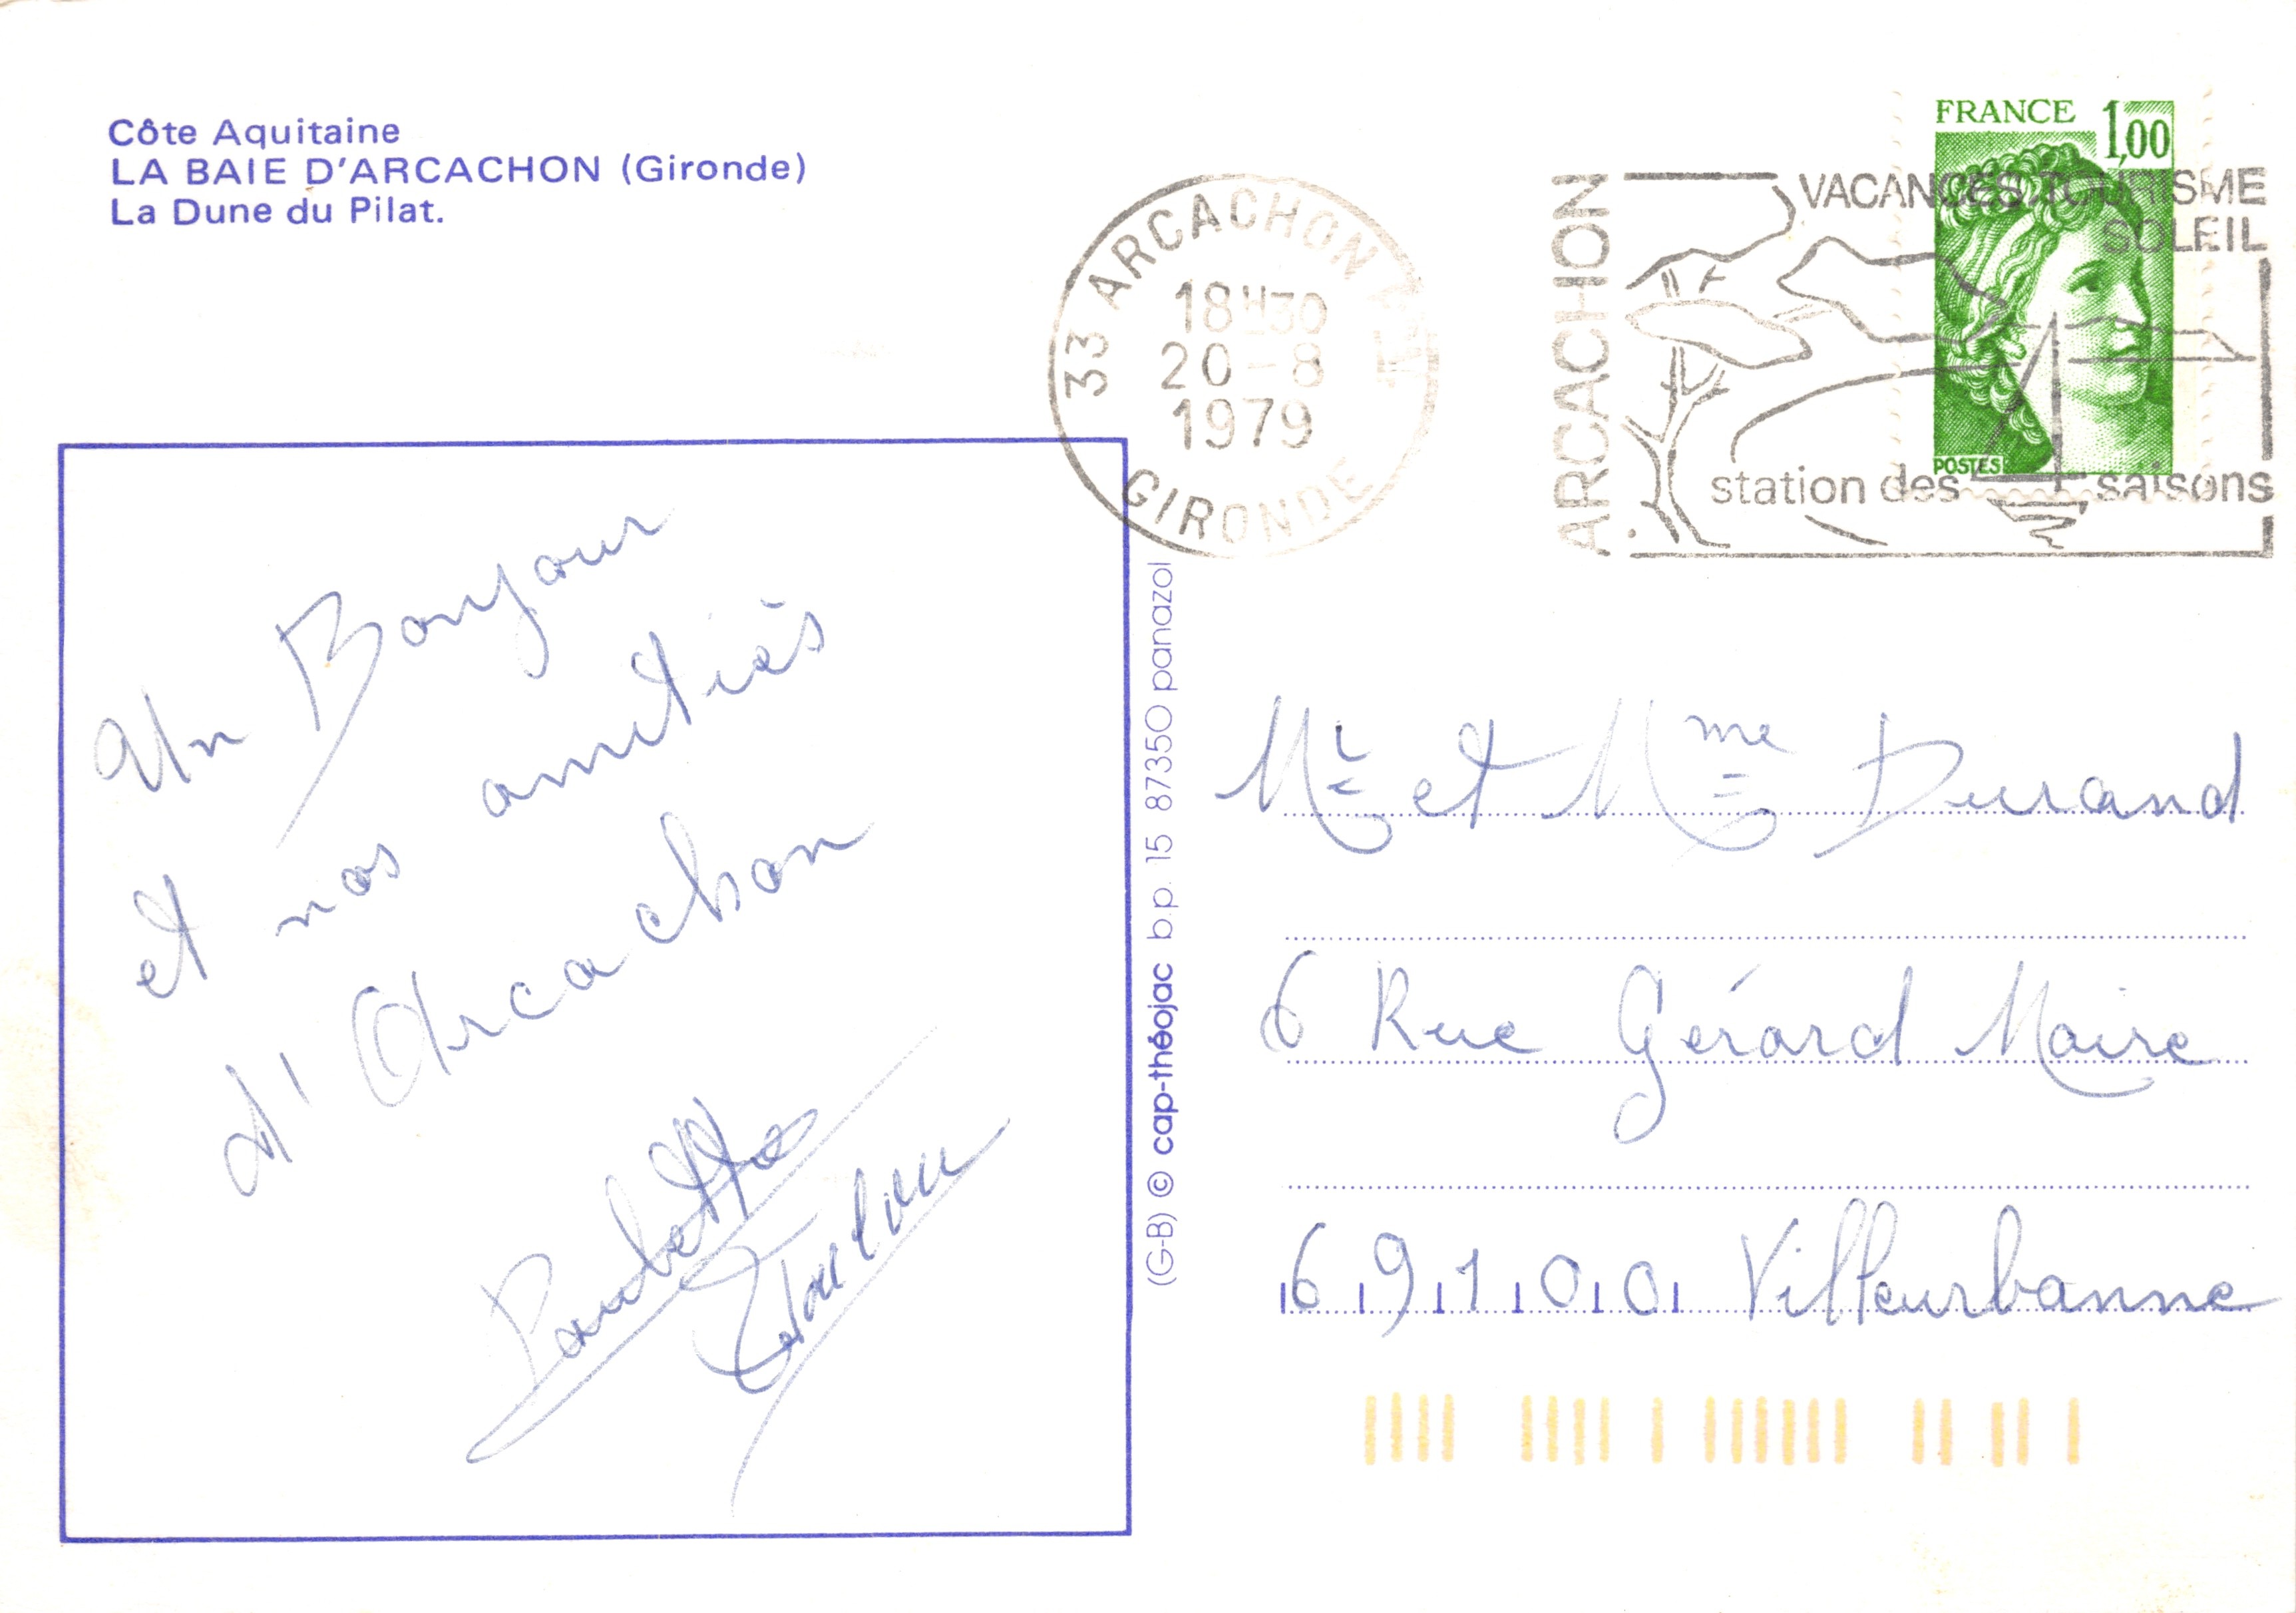 Côte Aquitaine
LA BAIE D'ARCACHON (Gironde)
La Dune du Pilat.
33 ARCACHON
18H30
20-8
1979
GIRONDE
ARCACHON
VACANCES TOURISME
SOLEIL
station des saisons
FRANCE 1,00
POSTES
Un Bonjour
et nos amitiés
d'Arcachon
Paulette
(G-B) © cap-théojac b.p. 15 87350 panazol
Mr et Mme Durand
6 Rue Gérard Maire
69100 Villeurbanne